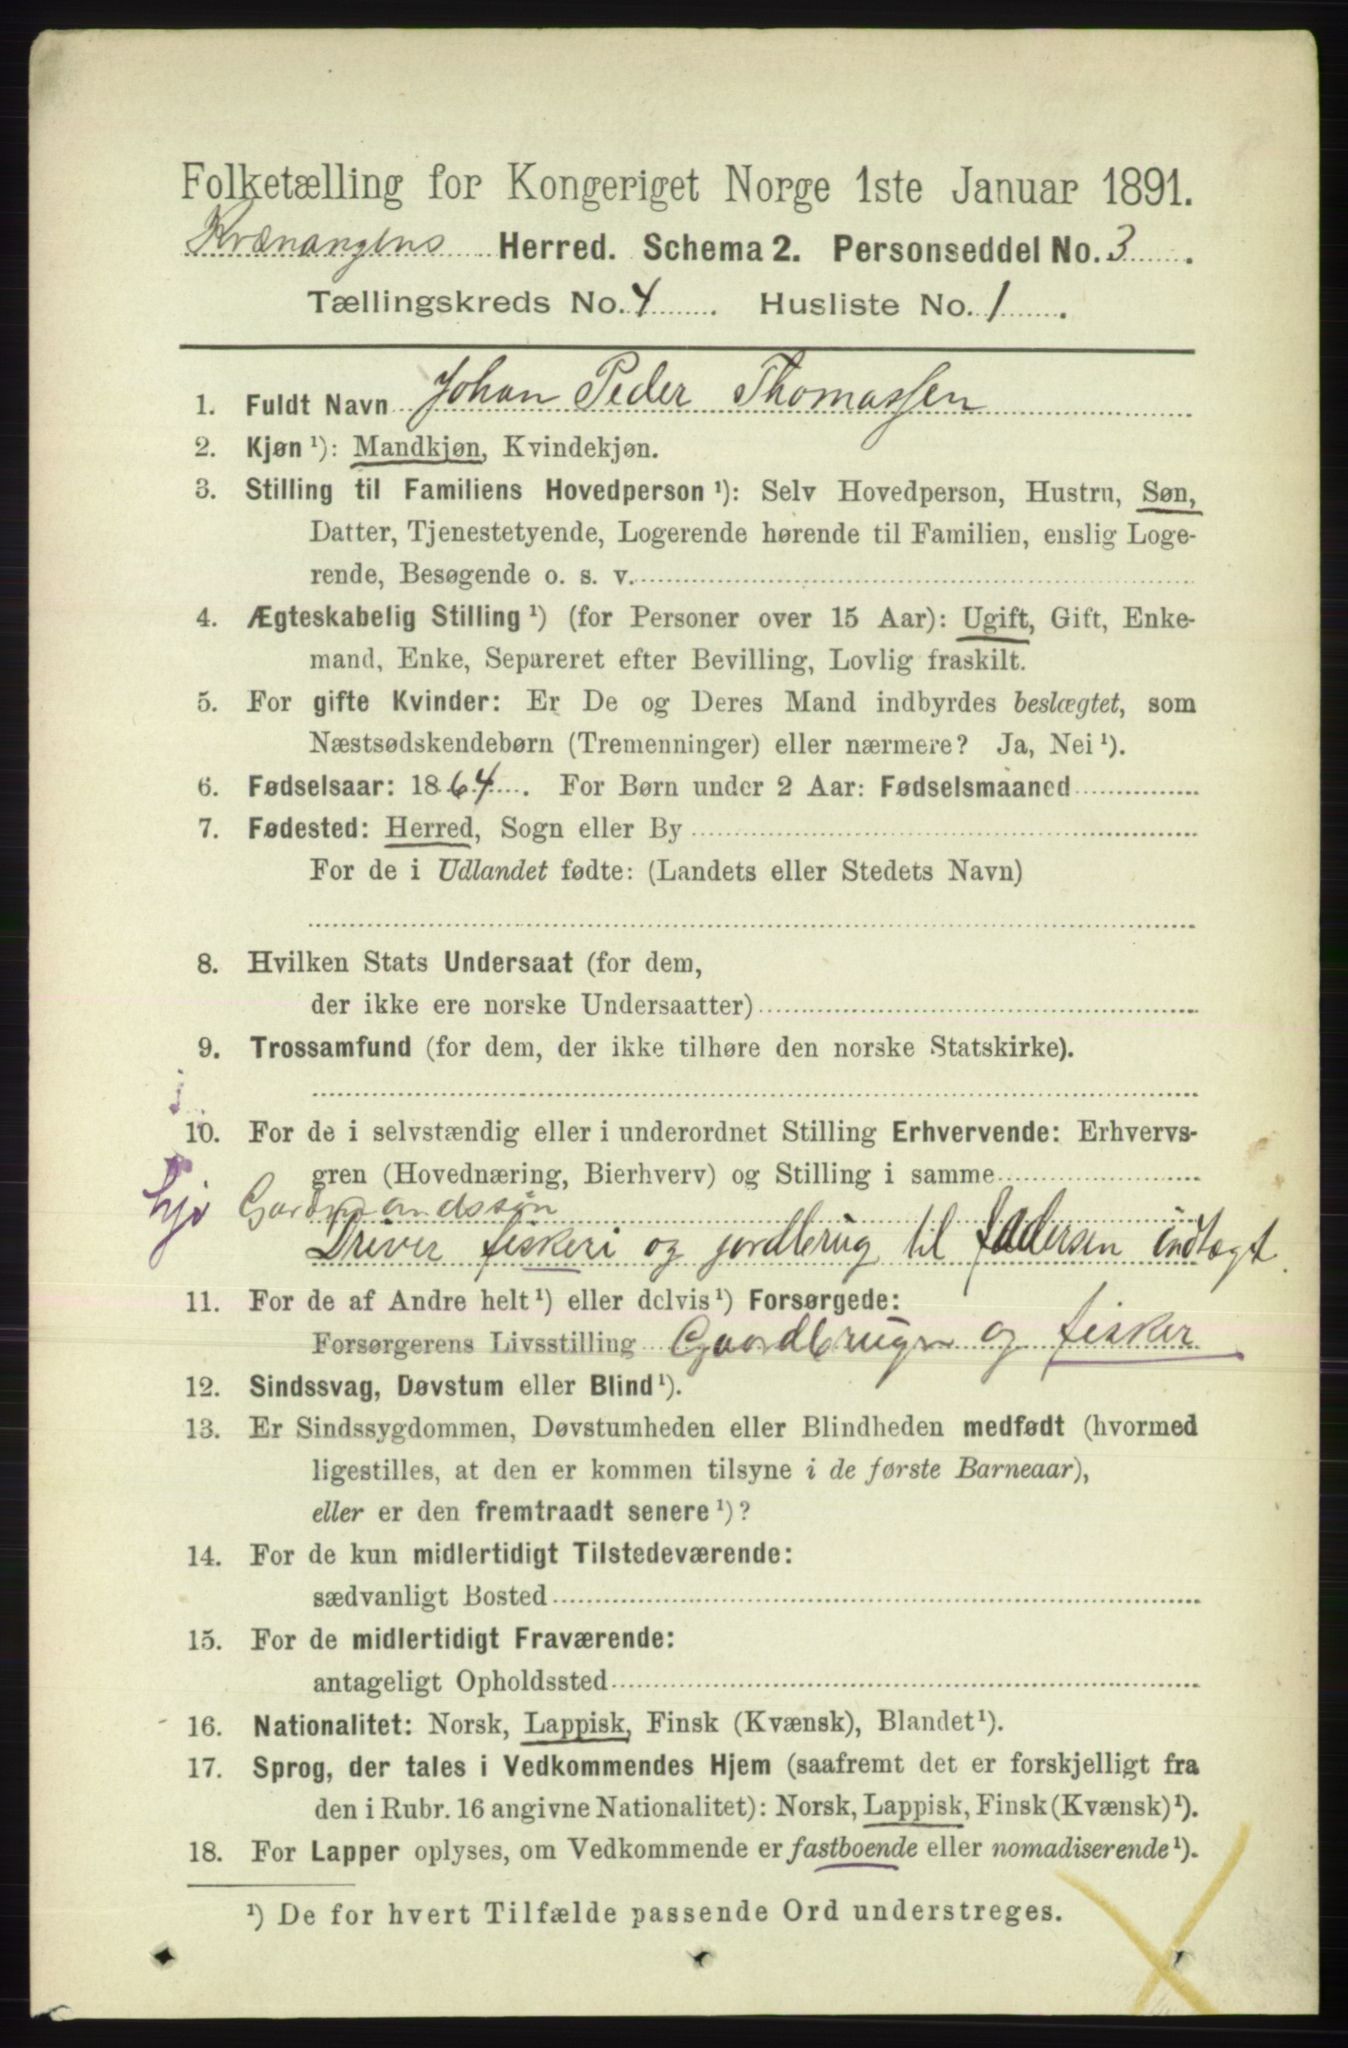 Folketælling for Kongeriget Norge 1ste Januar 1891.
Kvænangens Herred. Schema 2. Personseddel No. 3.
Tællingskreds No. 4. Husliste No. 1.
1. Fuldt Navn Johan Peder Thomassen
2. Kjøn ¹): Mandkjøn, Kvindekjøn.
3. Stilling til Familiens Hovedperson ¹): Selv Hovedperson, Hustru, Søn,
Datter, Tjenestetyende, Logerende hørende til Familien, enslig Loge-
rende, Besøgende o. s. v.
4. Ægteskabelig Stilling ¹) (for Personer over 15 Aar): Ugift, Gift, Enke-
mand, Enke, Separeret efter Bevilling, Lovlig fraskilt.
5. For gifte Kvinder: Er De og Deres Mand indbyrdes beslægtet, som
Næstsødskendebørn (Tremenninger) eller nærmere? Ja, Nei ¹).
6. Fødselsaar: 1864. For Børn under 2 Aar: Fødselsmaaned
7. Fødested: Herred, Sogn eller By
For de i Udlandet fødte: (Landets eller Stedets Navn)
8. Hvilken Stats Undersaat (for dem,
der ikke ere norske Undersaatter)
9. Trossamfund (for dem, der ikke tilhøre den norske Statskirke).
j.
10. For de i selvstændig eller i underordnet Stilling Erhvervende: Erhvervs-
gren (Hovednæring, Bierhverv) og Stilling i samme
hjv Gardmandssøn
Driver fiskeri og jordbrug til fadersen indtægt.
11. For de af Andre helt ¹) eller delvis ¹) Forsørgede:
Forsørgerens Livsstilling Gaardbruger og fisker
12. Sindssvag, Døvstum eller Blind ¹).
13. Er Sindssygdommen, Døvstumheden eller Blindheden medfødt (hvormed
ligestilles, at den er kommen tilsyne i de første Barneaar),
eller er den fremtraadt senere ¹)?
14. For de kun midlertidigt Tilstedeværende:
sædvanligt Bosted
15. For de midlertidigt Fraværende:
antageligt Opholdssted
16. Nationalitet: Norsk, Lappisk, Finsk (Kvænsk), Blandet ¹).
17. Sprog, der tales i Vedkommendes Hjem (saafremt det er forskjelligt fra
den i Rubr. 16 angivne Nationalitet): Norsk, Lappisk, Finsk (Kvænsk) ¹).
18. For Lapper oplyses, om Vedkommende er fastboende eller nomadiserende ¹).
¹) De for hvert Tilfælde passende Ord understreges.